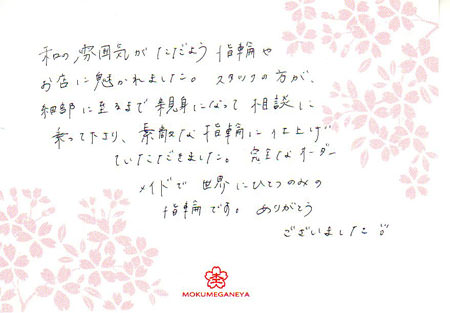 和の雰囲気がただよう指輪や
お店に魅かれました。スタッフの方が、
細部に至るまで親身になって相談に
乗って下さり、素敵な指輪に仕上げ
ていただきました。完全なオーダー
メイドで世界にひとつのみの
指輪です。ありがとう
ございました
MOKUMEGANEYA